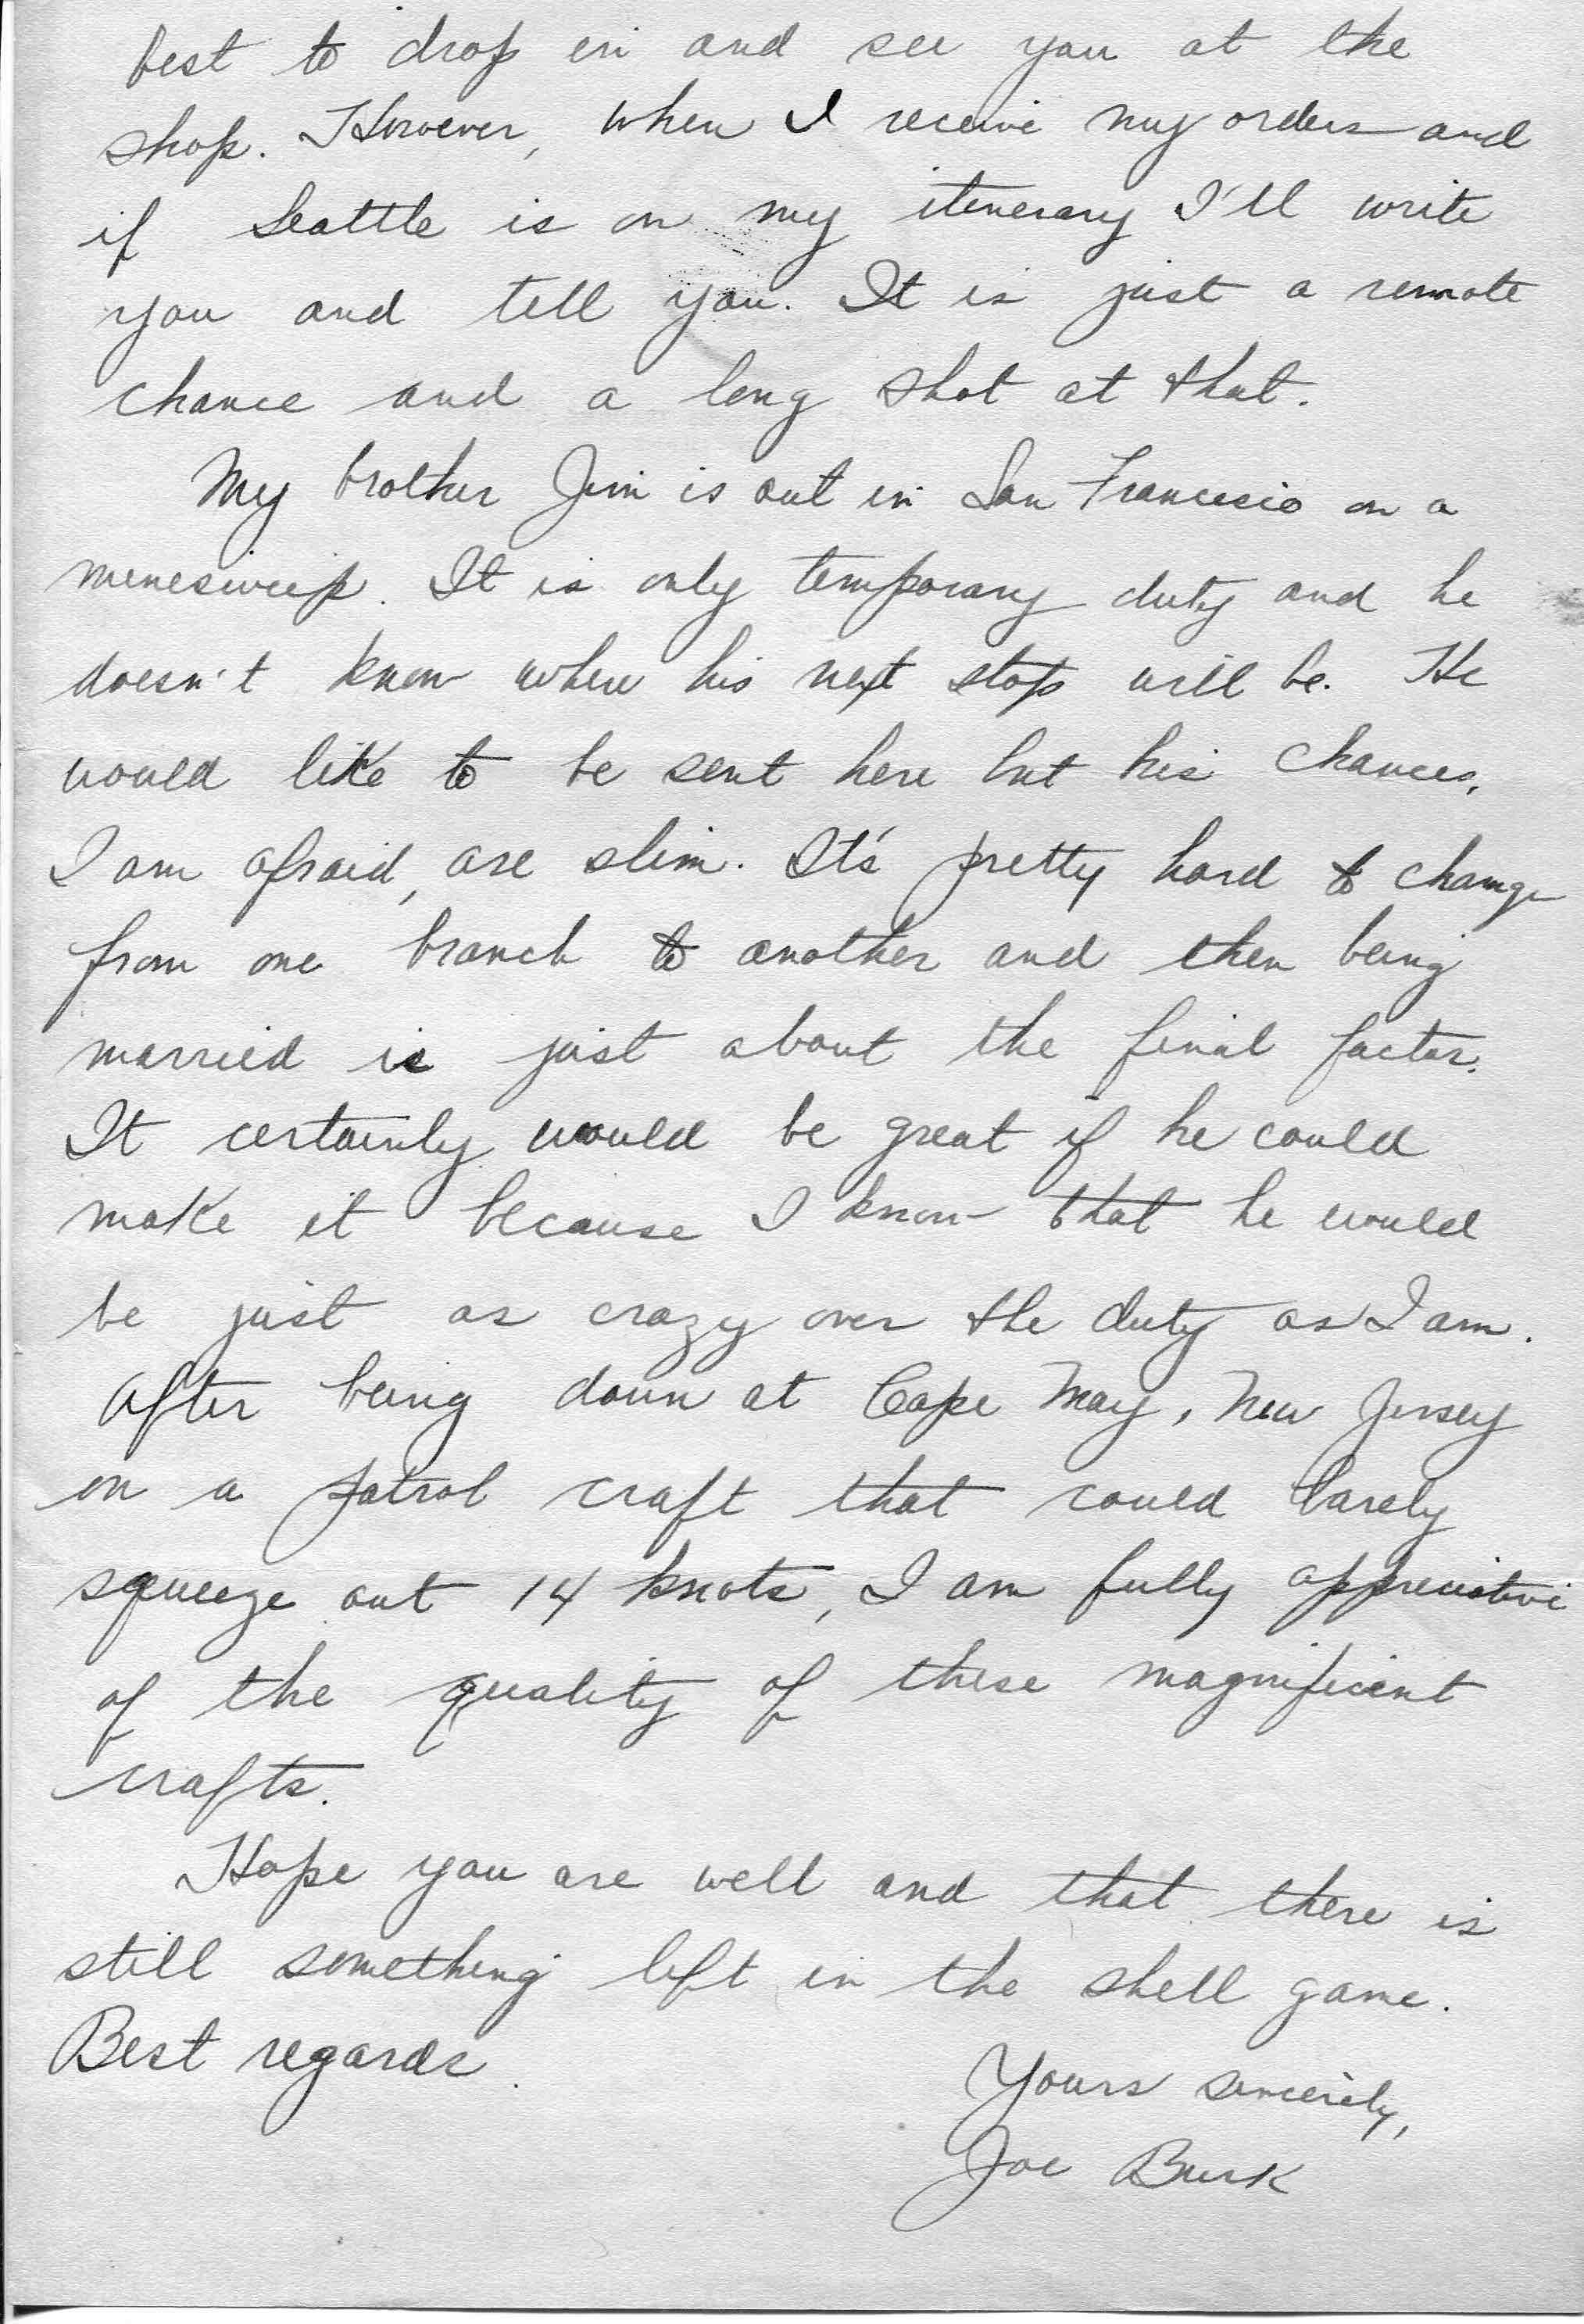 best to drop in and see you at the
shop. However, when I receive my orders and
if Seattle is on my itinerary I'll write
you and tell you. It is just a remote
chance and a long shot at that.
My brother Jim is out in San Francisco on a
minesweep. It is only temporary duty and he
doesn't know where his next stop will be. He
would like to be sent here but his chances,
I am afraid, are slim. It's pretty hard to change
from one branch to another and then being
married is just about the final factor.
It certainly would be great if he could
make it because I know that he would
be just as crazy over the duty as I am.
After being down at Cape May, New Jersey
on a patrol craft that could barely
squeeze out 14 knots, I am fully appreciative
of the quality of these magnificent
crafts.
Hope you are well and that there is
still something left in the shell game.
Best regards.
Yours sincerely,
Joe Burk